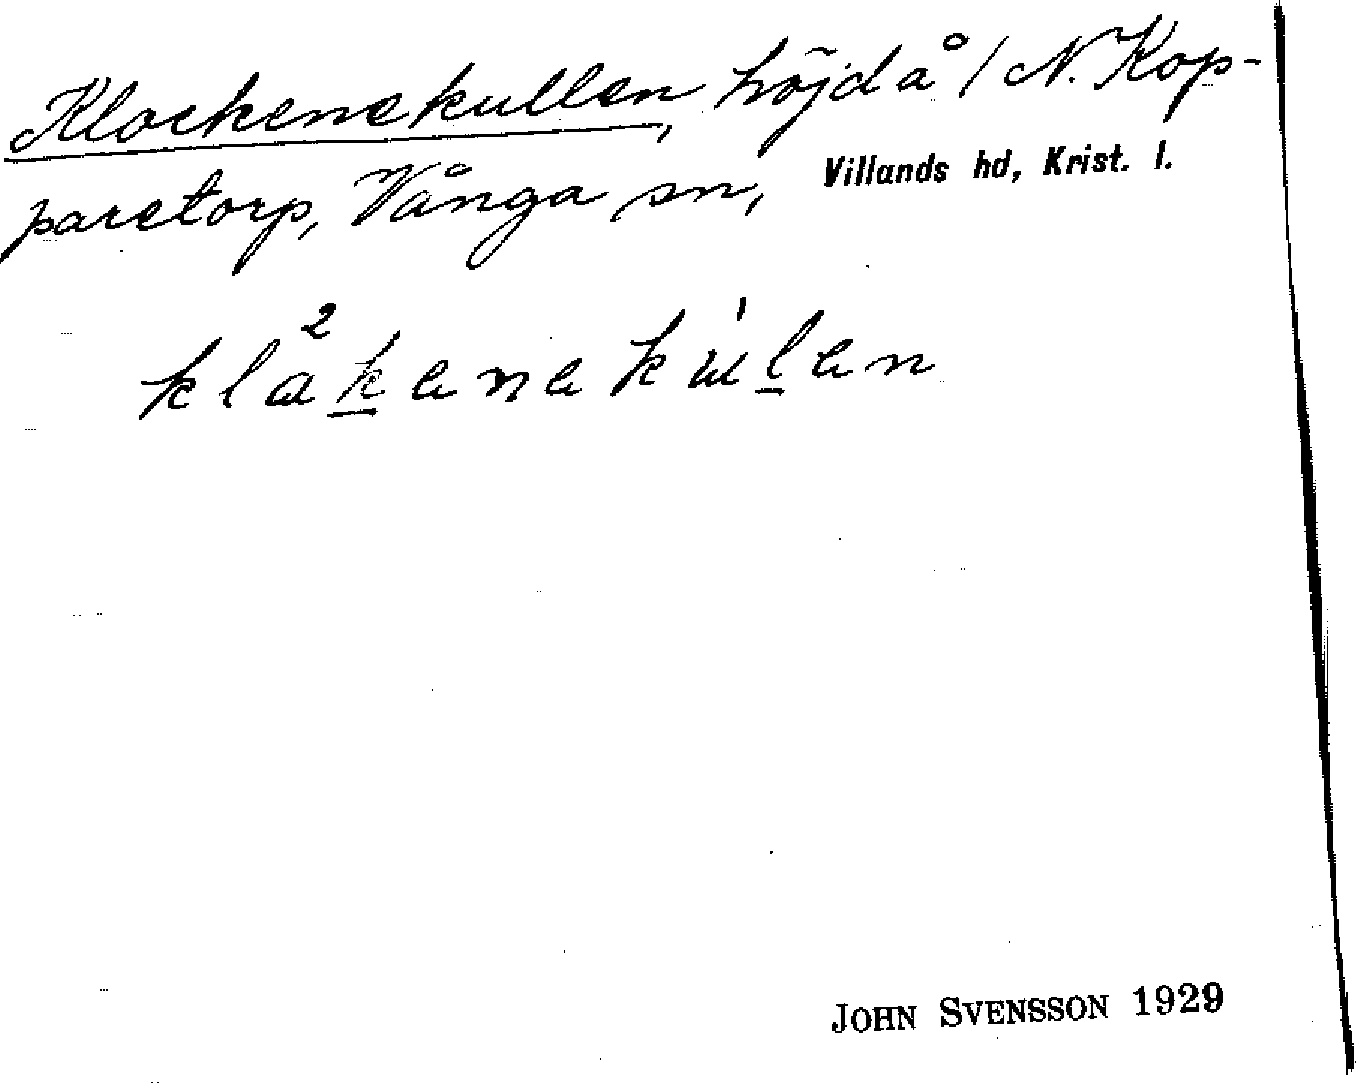 Klockenekullen, höjd å 1 N. Kop-
paretorp, Vånga sn, Villands hd, Krist. l.
JOHN SVENSSON 1929